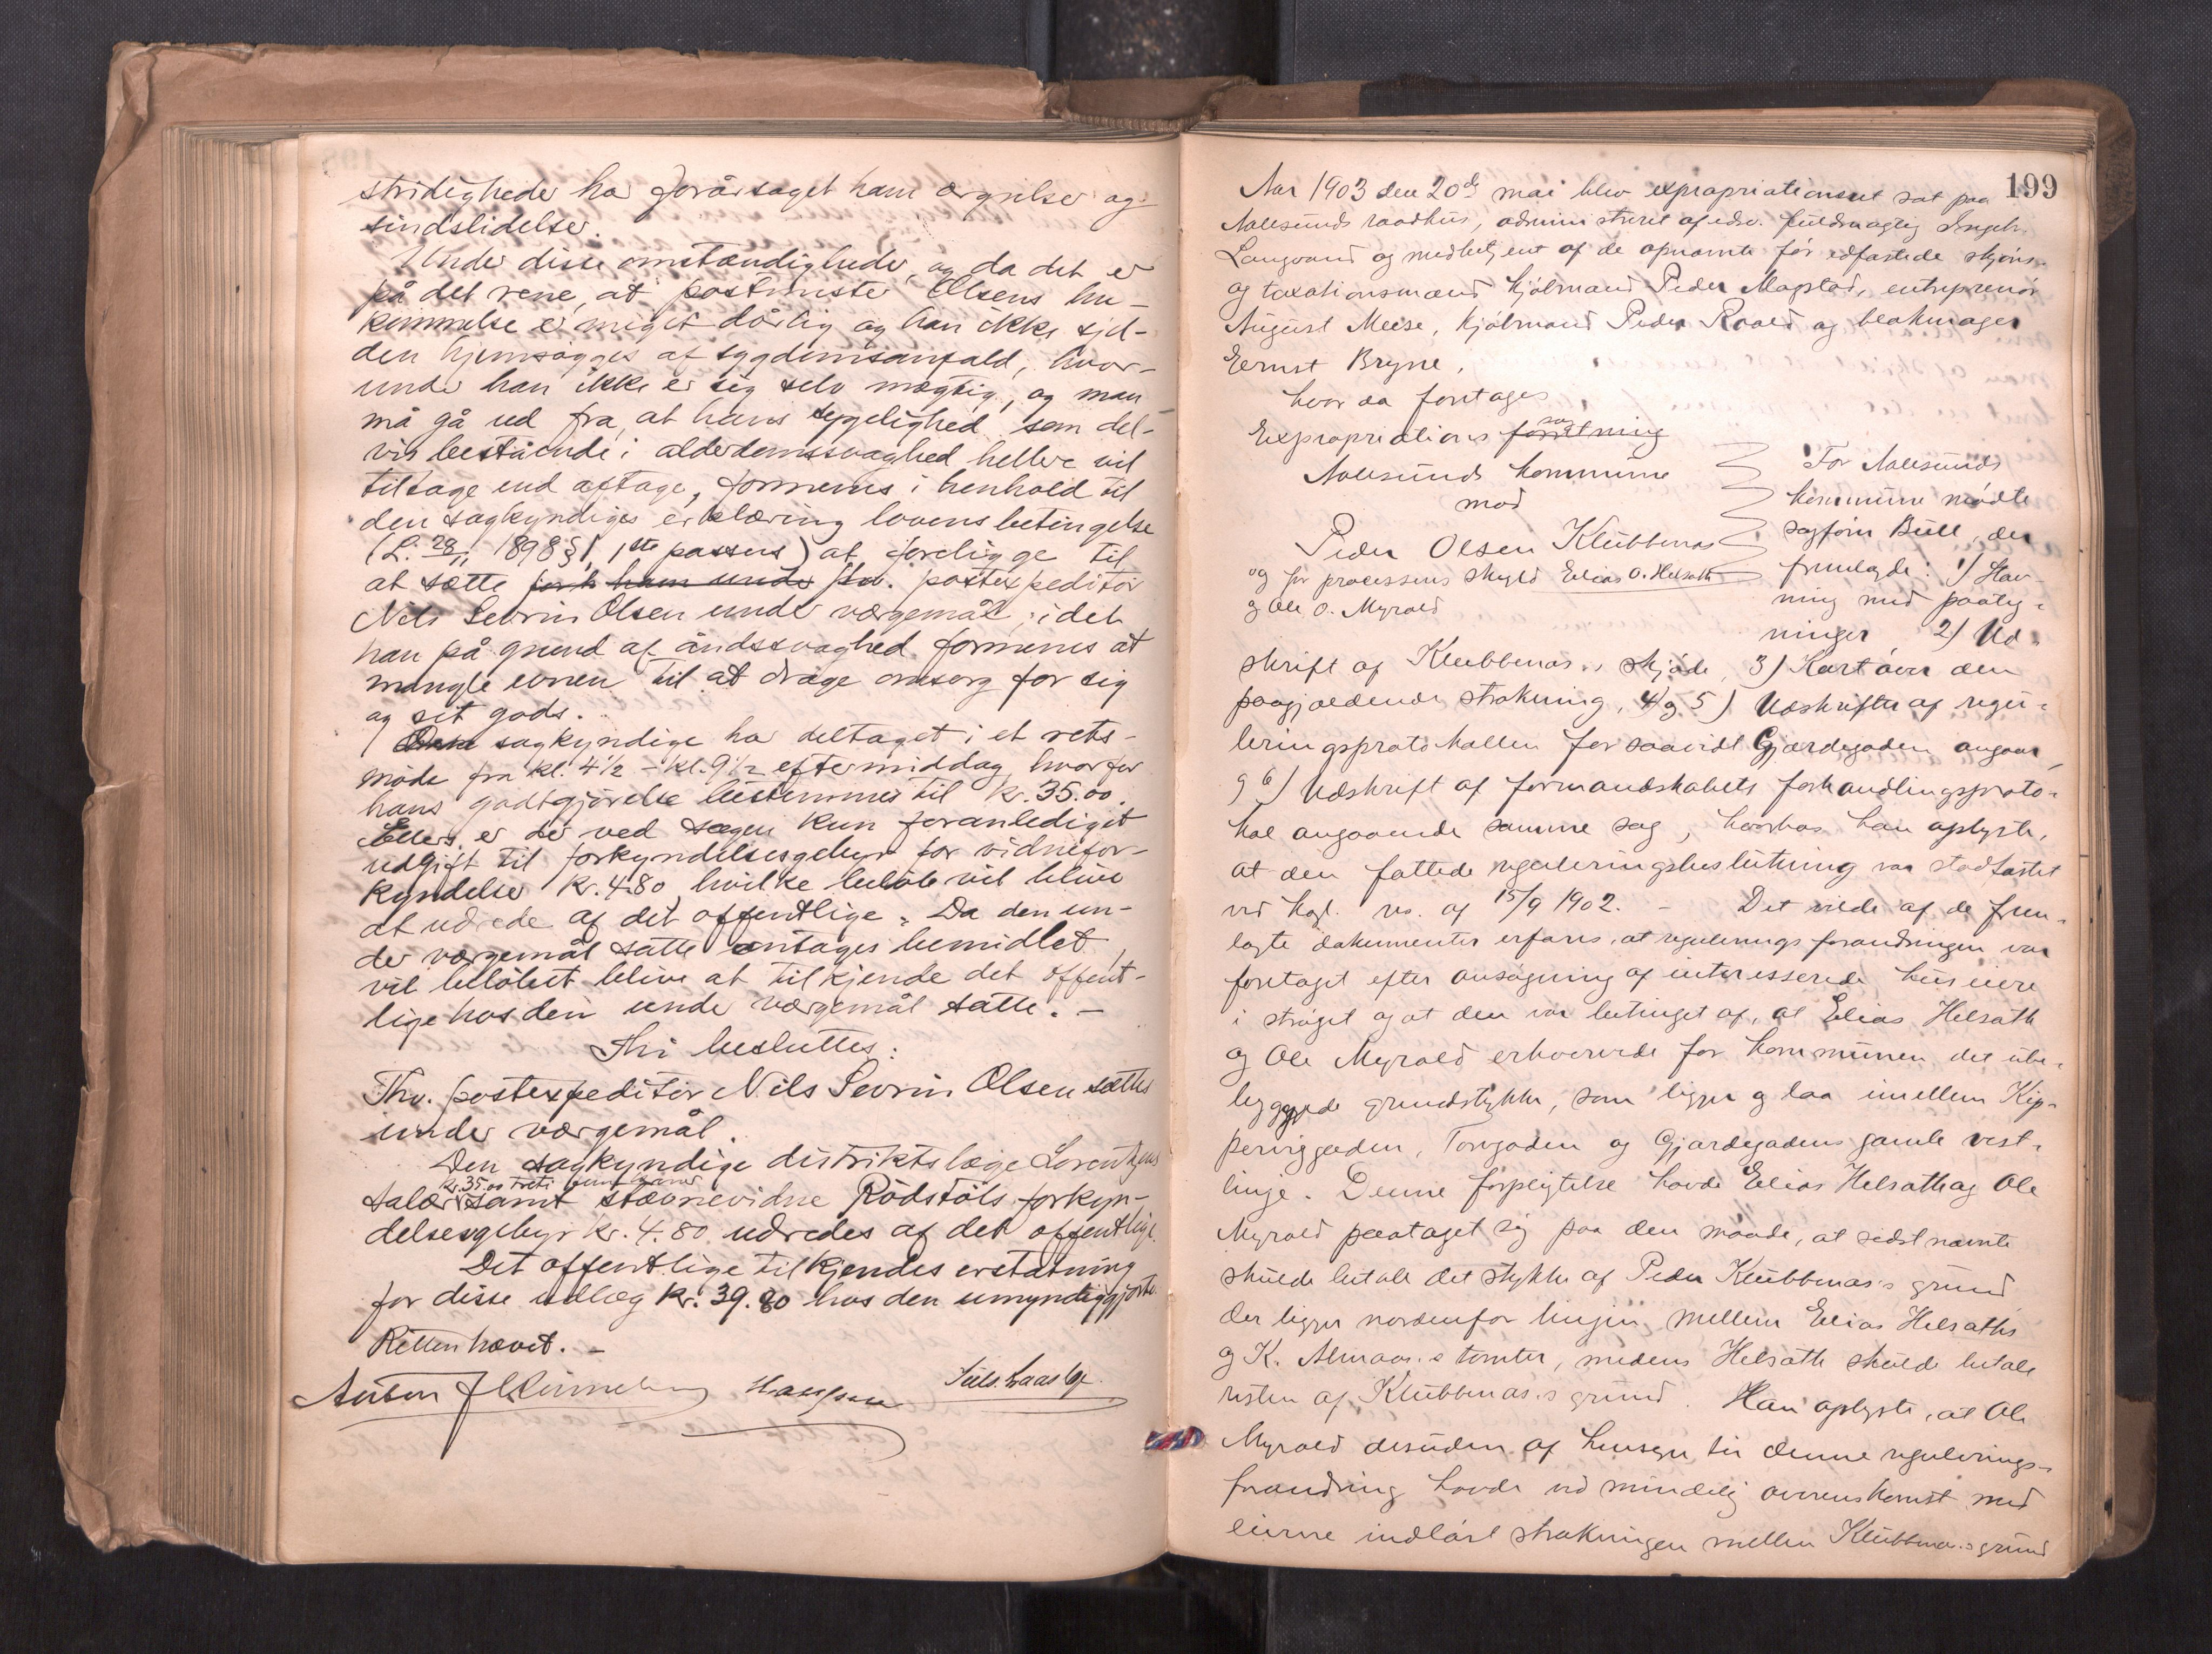 stridigheder har forårsaget ham ærgrelser og
sindslidelse.
Under disse omstændigheder, og da det er
på det rene, at postmester Olsens hu-
kommelse er meget dårlig og han ikke sjel-
den hjemsøgges af sygdomsanfald, hvor-
under han ikke er sig selv mægtig, og man
må gå ud fra, at hans sygelighed som del-
vis bestående i alderdomssvaghed hellere vil
tiltage end aftage, formenes i henhold til
den sagkyndiges erklæring lovens betingelse
(L. 28/11 1898 § 1, 1ste passus) at foreligge til
at sætte ham under fhv. postexpeditør
Nels Sevrin Olsen under værgemål, idet
han på grund af åndssvaghed formenes at
mangle evnen til at drage omsorg for sig
og sit gods.
Den sagkyndige har deltaget i et rets-
møde fra kl. 4 1/2 - kl. 9 1/2 eftermiddag, hvorfor
hans godtgjørelse bestemmes til kr. 35.00.
Ellers er der ved sagen kun foranlediget
udgift til forkyndelsesgebyr for vidnefor-
kyndelse kr. 4.80 hvilke beløb vil blive
at udrede af det offentlige. Da den un-
der værgemål satte antages bemidlet,
vil beløbet blive at tilkjende det offent-
lige hos den under værgemål satte. -
Thi besluttes:
Fhv. postexpeditør Nils Sevrin Olsen sættes
under værgemål.
Den sagkyndige distriktslæge Lorentzens
kr. 35.00 treti fem kroner
salær samt stævnevidne Rødstøls forkyn-
delsesgebyr kr. 4.80 udredes af det offentlige.
Det offentlige tilkjendes erstatning
for disse udlæg kr. 39.80 hos den umyndiggjorte.
Retten hævet. -
Anton
199
Aar 1903 den 20de mai blev expropriationsret sat paa
Aalesunds raadhus, administreret af edsv. fuldmægtig Ingebr.
Langvand og medbetjent af de opnævnte før edfæstede skjøns-
og taxationsmænd kjøbmand Peder Magstad, entreprenør
August Meese, kjøbmand Peder Roald og blokmager
Ernst Bryne,
hvor da foretages
sag
Expropriations forretning
Aalesunds kommune
mod
Peder Olsen Klubbenæs
og for processens skyld Elias O. Helsæth
og Ole O. Myrold
For Aalesunds
kommune mødte
sagfører Bull, der
fremlagde: 1) Stæv-
ning med paateg-
ninger 2) Ud-
skrift af Klubbenæs.s skjøde, 3) Kart over den
paagjældende strækning, 4) og 5) Udskrifter af regu-
leringsprotokollen forsaavidt Gjærdegaden angaar,
g 6) Udskrift af formandskabets forhandlingsproto-
kol angaaende samme sag, hvorhos han oplyste,
at den fattede reguleringsbeslutning var stadfæstet
ved kgl. res. af 15/9 1902. - Det vilde af de frem-
lagte dokumenter erfares, at reguleringsforandringen var
foretaget efter ansøgning af interesserede huseiere
i strøget og at den var betinget af, at Elias Helsæth
og Ole Myrold erhvervede for kommunen det ube-
byggede grundstykke, som ligger og laa imellem Kip-
perviggaden, Torvgaden og Gjærdegadens gamle vest-
linje. Denne forpligtelse havde Elias Helsæth og Ole
Myrold paataget sig paa den maade, at sidstnævnte
skulde betale det stykke af Peder Klubbenæs's grund
der ligger nordenfor linjen mellem Elias Helsæths
og K. Almaas.s tomter, medens Helsæth skulde betale
resten af Klubbenæs.s grund. Han oplyste, at Ole
Myrold desuden af hensyn til denne regulerings-
forandring havde ved mindelig overenskomst med
eierne indløst strækningen mellem Klubbenæs.s grund